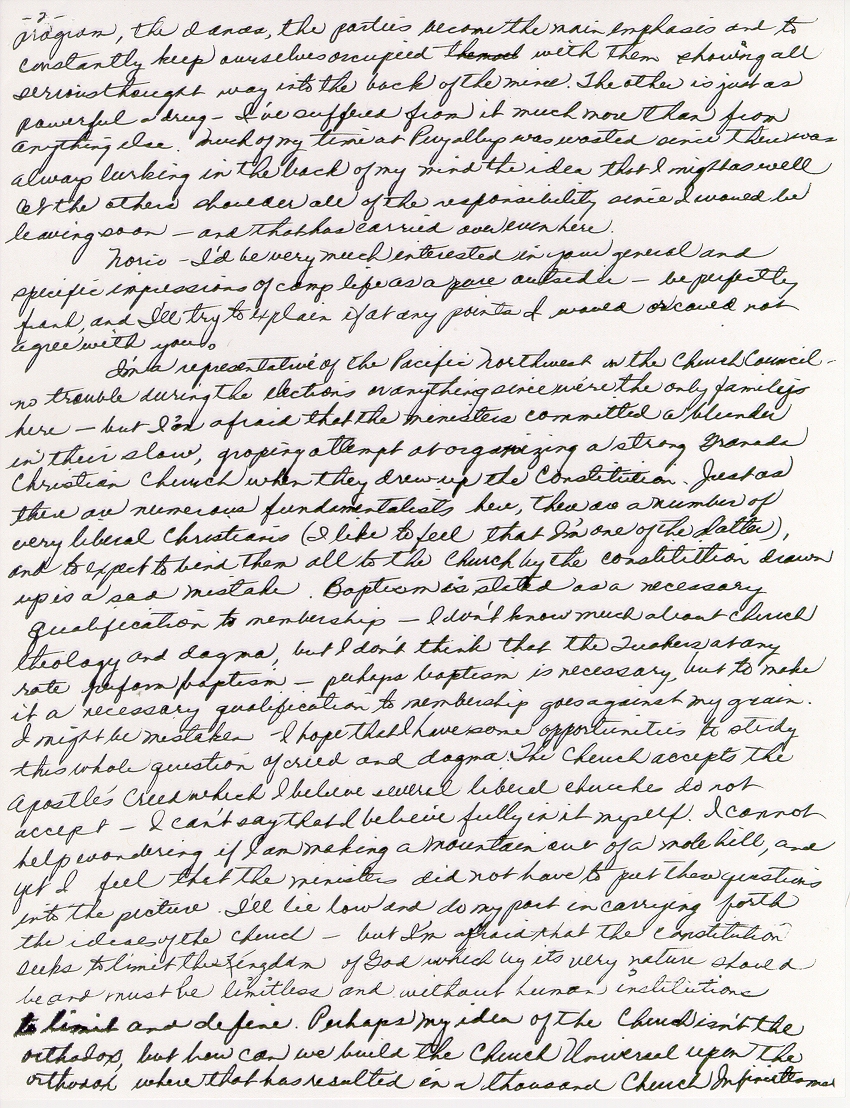 -2-
program, the dances, the parties become the main emphasis and to
constantly keep ourselves occupied with them shoving all
serious thought way into the back of the mind. The other is just as
powerful a drug - I've suffered from it much more than from
anything else. Much of my time at Puyallup was wasted since there was
always lurking in the back of my mind the idea that I might as well
let the others shoulder all of the responsibility since I would be
leaving soon - and that has carried over even here.
Norio - I'd be very much interested in your general and
specific impressions of camp life as a pure outsider - be perfectly
frank, and I'll try to explain if at any points I would or could not
agree with you.
I'm a representative of the Pacific Northwest on the Church Council -
no trouble during the elections or anything since we're the only families
here - but I'm afraid that the ministers committed a blunder
in their slow, groping attempt at organizing a strong Granada
Christian Church when they drew up the Constitution. Just as
there are numerous fundamentalists here, there are a number of
very liberal Christians (I like to feel that I'm one of the latter),
and to expect to bind them all to the Church by the constitution drawn
up is a sad mistake. Baptism is stated as a necessary
qualification to membership - I don't know much about church
theology and dogma, but I don't think that the Quakers at any
rate perform baptism - perhaps baptism is necessary, but to make
it a necessary qualification to membership goes against my grain.
I might be mistaken - I hope that I have some opportunities to study
this whole question of creed and dogma. The Church accepts the
Apostle's Creed which I believe several liberal churches do not
accept - I can't say that I believe fully in it myself. I cannot
help wondering if I am making a mountain out of a mole hill, and
yet I feel that the ministers did not have to put these questions
into the picture. I'll lie low and do my part in carrying forth
the ideas of the church - but I'm afraid that the constitution
seeks to limit the Kingdom of God which by its very nature should
be and must be limitless and without human institutions
to limit and define. Perhaps my idea of the Church isn't the
orthodox, but how can we build the Church Universal upon the
orthodox where that has resulted in a thousand Church